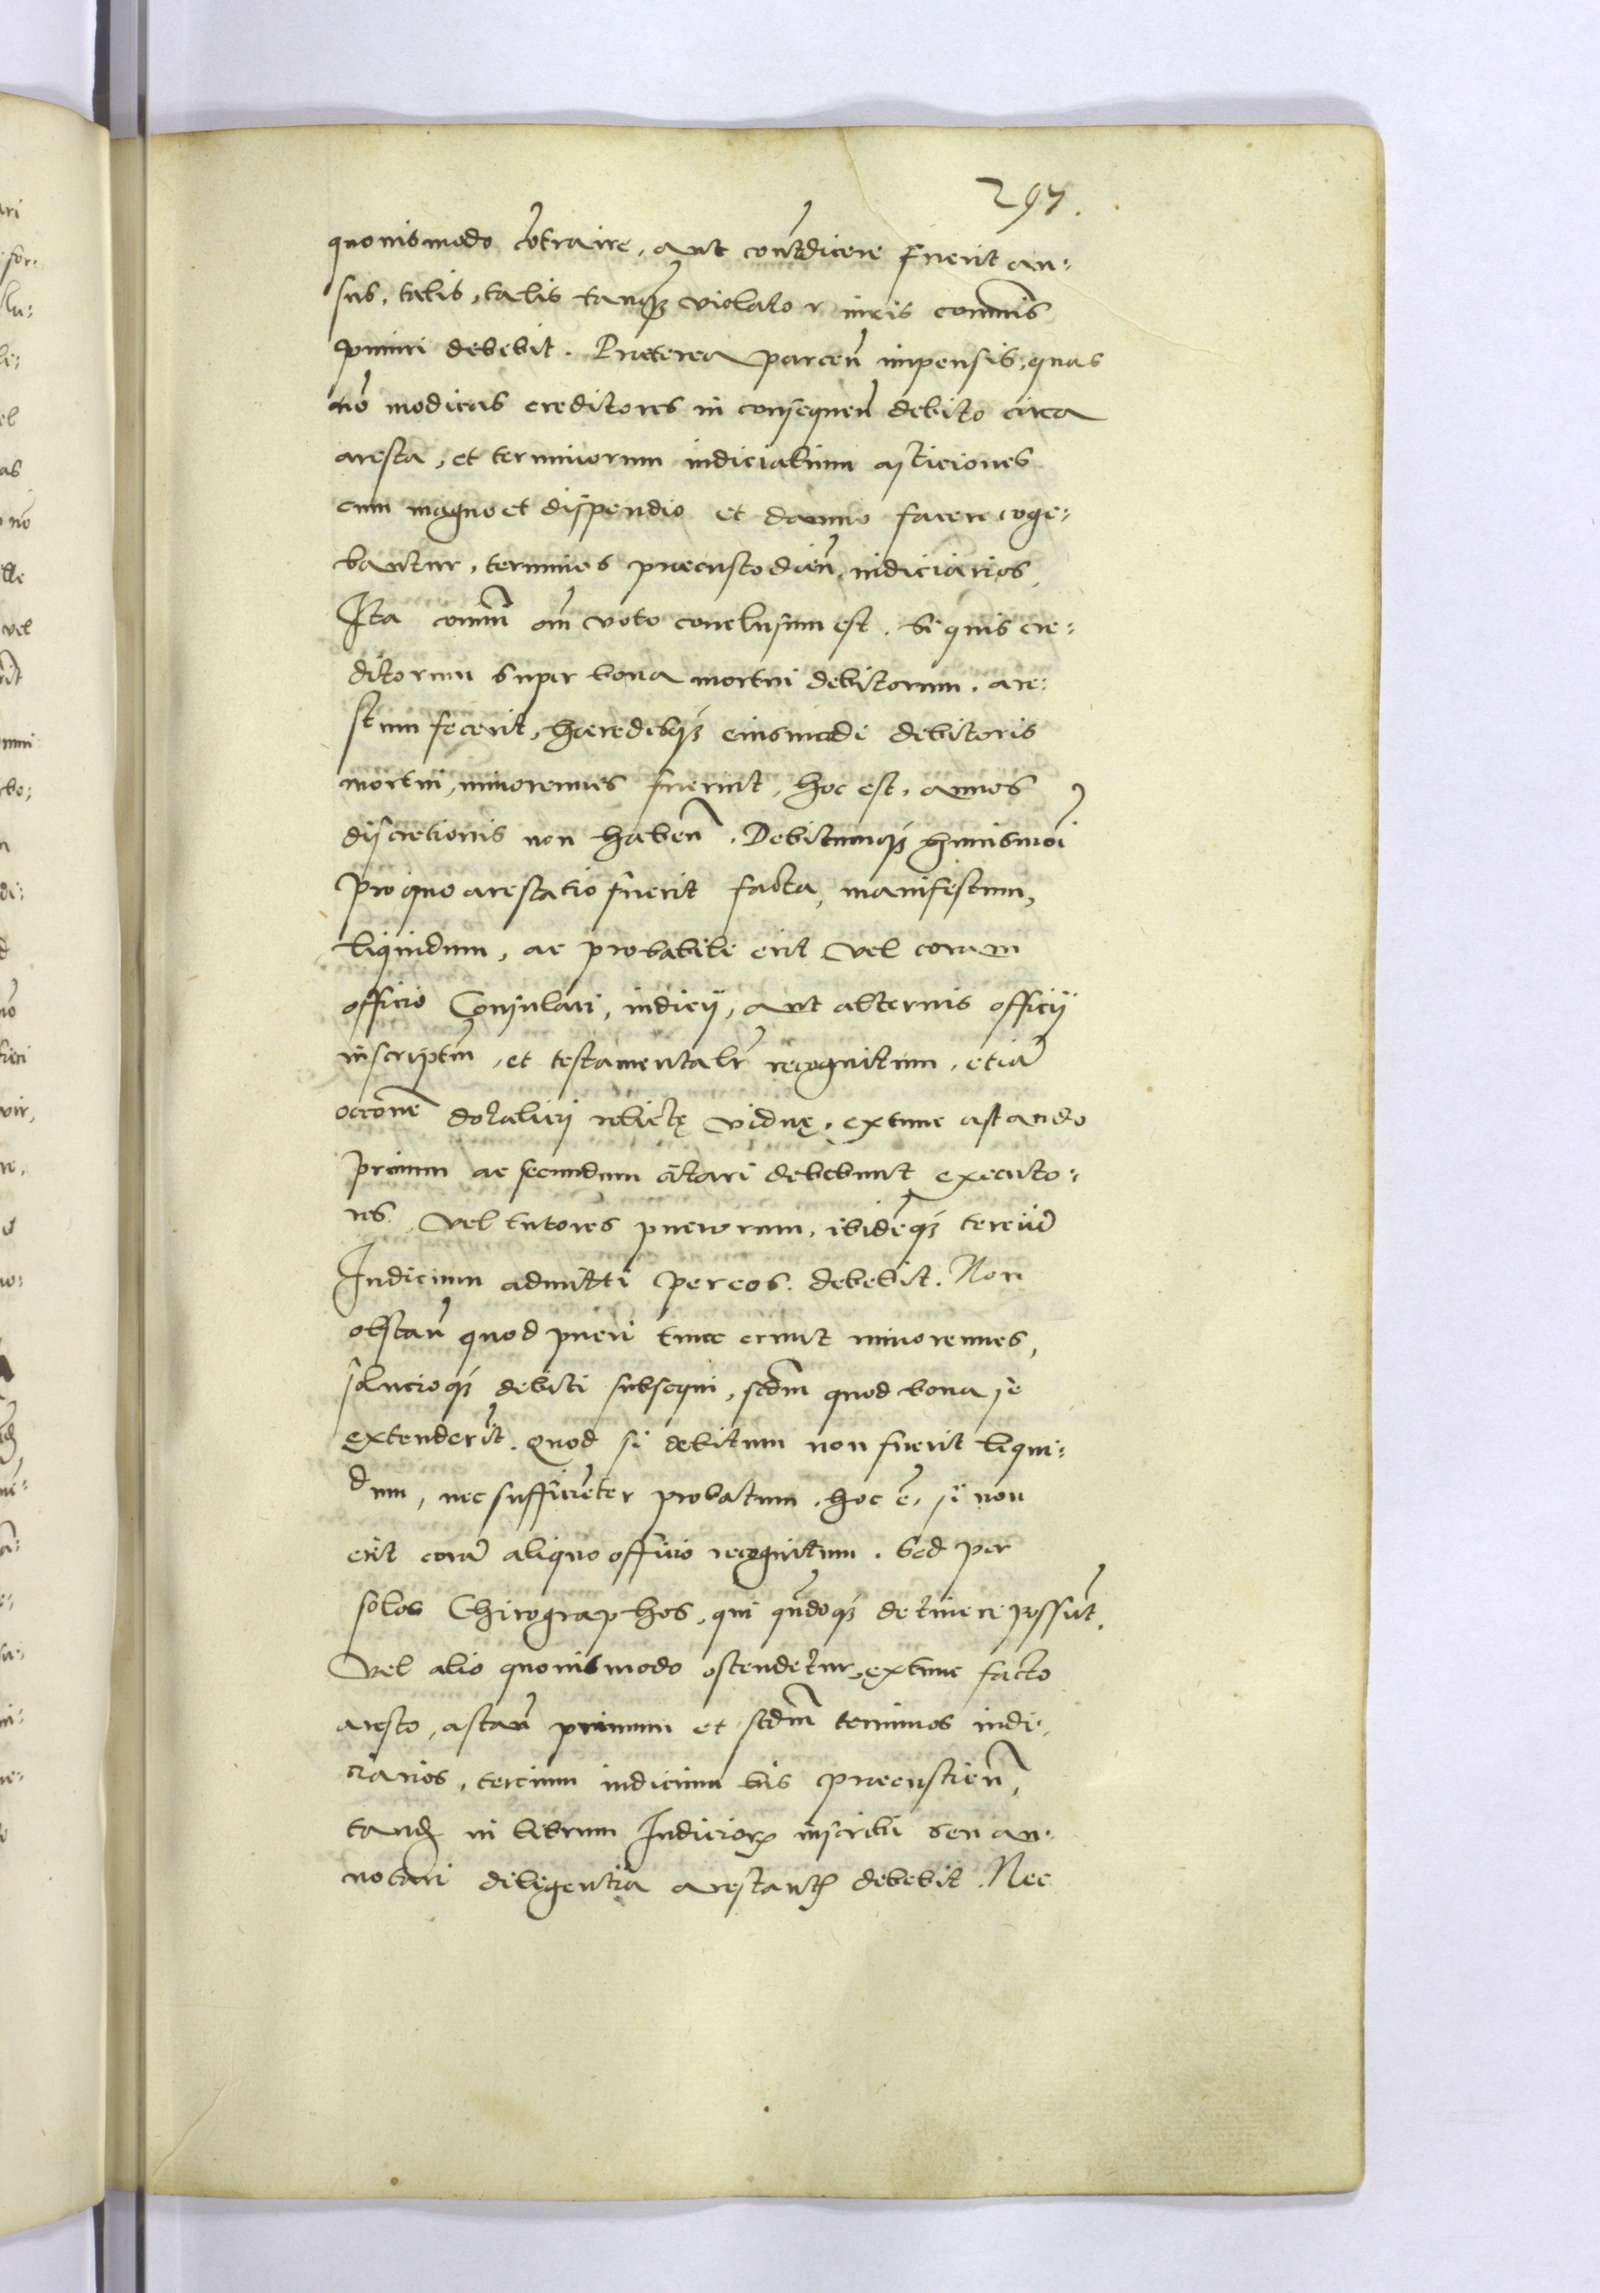 297.
quouismodo cõtraire, aut contrãdicere fuerit au:
sus, talis, talis tanqȝ violator iuris commũis
puniri debebit. Praeterea parceñ impensis, quas
nõ modicas creditores in consequeñ debito circa
aresta, et terminorum iudicialium
cum magno et dispendio et damno facere coge:
bantur, terminos praecustodieñ iudiciarios,
Ita commũi oĩm voto conclusum est. Si quis cre:
ditorum super bona mortui debitorum, are:
stum fecerit, haeredesqȝ eiusmodi debitoris
mortui, minorennes fuerint, hoc est, annos
discretionis non habeñ. Debitumqȝ huiusmoi
pro quo arestatio fuerit facta, manifestum,
liquidum, ac probabile erit vel coram
officio Consulari, iudicij, aut alternis officij
inscriptũ, et testamentalr̃ recognitum, etiã
occõne dotalicij relictę viduę, extunc astando
primum ac secundum citari debebunt executo:
res, vel tutores puerorum, ibidẽqȝ terciũ
Iudicium admitti per eos debebit. Non
obstañ quod pueri tunc erunt minorennes,
solucioqȝ debiti subsequi, scdm̃ quod bona se
extenderĩt. Quod si debitum non fuerit liqui:
dum, nec sufficiẽter probatum, hoc ẽ, si non
erit corã aliquo officio recognitum. Sed per
solos Chirographos, qui qñdoqȝ detinere possũt,
Vel alio quouismodo ostendetur, extunc facto
aresto, astañ primum et scdm̃ terminos iudi-
ciarios, tercium iudicium bis praecustieñ,
tandẽ in librum Iudiciorꝝ inscribi seu an-
notari diligentia arestantis debebit. Nec